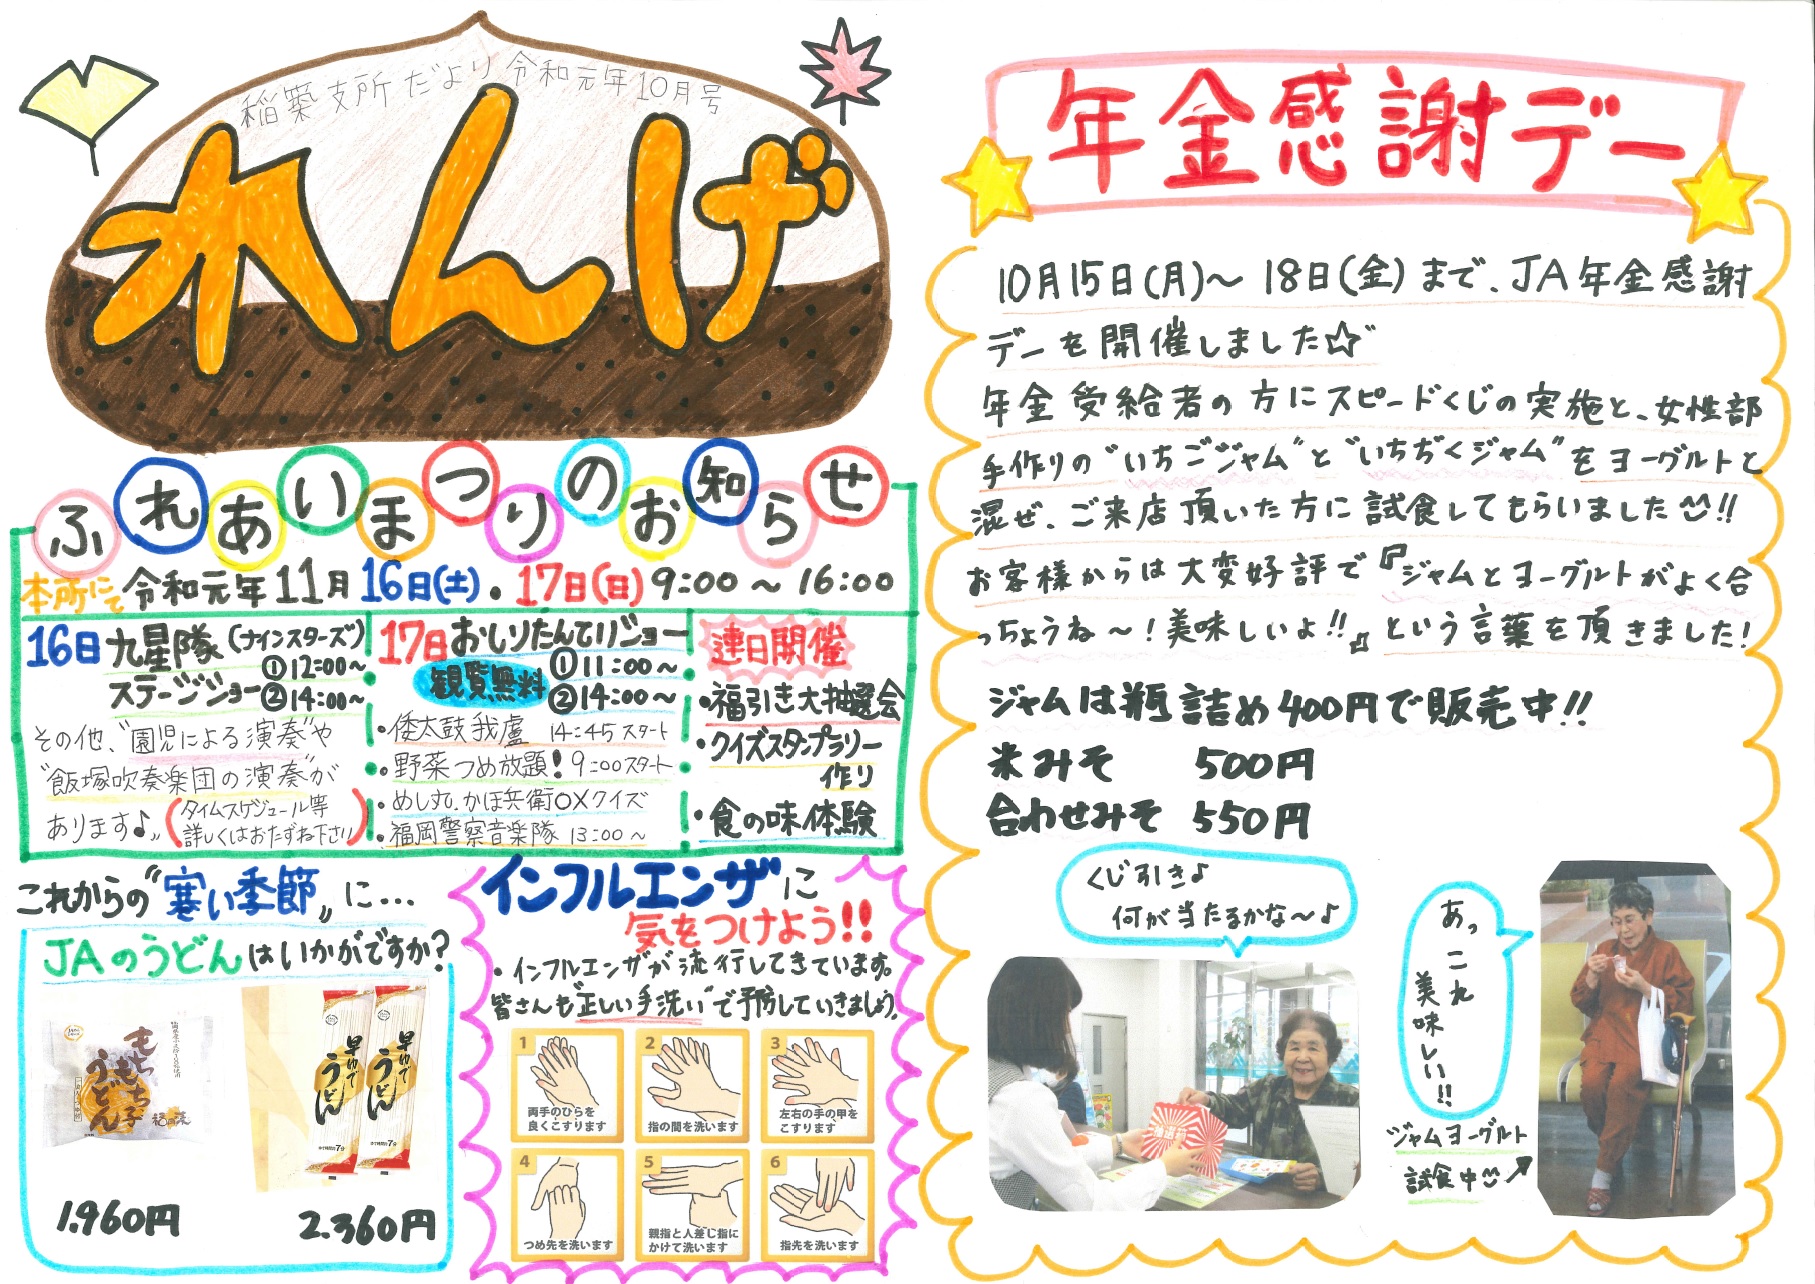 稲築支所だより 令和元年10月号
れんげ
ふれあいまつりのお知らせ
本所にて 令和元年11月16日(土)・17日(日) 9:00~16:00
16日 九星隊(ナインスターズ)
ステージショー ①12:00~
②14:00~
その他、"園児による演奏"や
"飯塚吹奏楽団の演奏"が
あります♪
(タイムスケジュール等
詳しくはおたずね下さい)
17日 おしりたんていショー
観覧無料 ①11:00~
②14:00~
・倭太鼓 我盧 14:45スタート
・野菜つめ放題! 9:00スタート
・めし丸.かほ兵衛○×クイズ
・福岡警察音楽隊 13:00~
連日開催
・福引き大抽選会
・クイズスタンプラリー
作り
・食の味体験
これからの"寒い季節"に…
JAのうどんはいかがですか?
もちもち
うどん
早ゆで
うどん
早ゆで
うどん
ゆで時間約7分
1.960円
2.360円
インフルエンザに
気をつけよう!!
・インフルエンザが流行してきています。
皆さんも"正しい手洗い"で予防していきましょう。
1
両手のひらを
良くこすります
2
指の間を洗います
3
左右の手の甲を
こすります
4
つめ先を洗います
5
親指と人差し指に
かけて洗います
6
指先を洗います
年金感謝デー
10月15日(月)~18日(金)まで、JA年金感謝
デーを開催しました☆
年金受給者の方にスピードくじの実施と、女性部
手作りの"いちごジャム"と"いちぢくジャム"をヨーグルトと
混ぜ、ご来店頂いた方に試食してもらいました!!
お客様からは大変好評で『ジャムとヨーグルトがよく合
っちょうね~!美味しいよ!!』という言葉を頂きました!
ジャムは瓶詰め400円で販売中!!
米みそ 500円
合わせみそ 550円
くじ引き♪
何が当たるかな~♪
あっ
これ
美味しい!!
ジャムヨーグルト
試食中